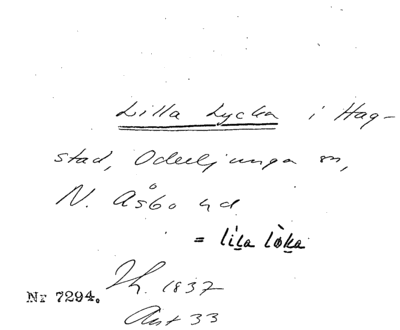 Lilla Lycka i Hag-
stad, Oderljunga sn,
N. Åsbo hd
= lila lòka
Nr 7294.
1837
Ant 33